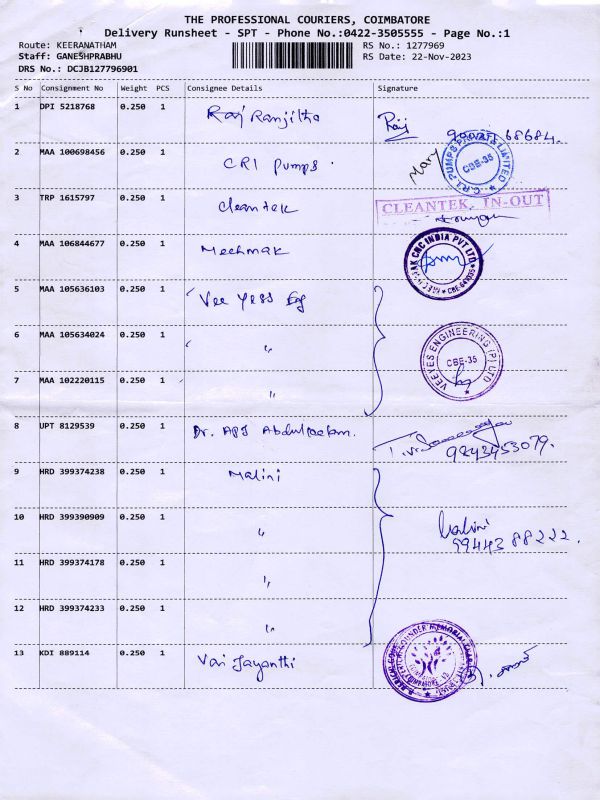 THE PROFESSIONAL COURIERS, COIMBATORE
Delivery Runsheet - SPT - Phone No.:0422-3505555 - Page No.:1
Route: KEERANATHAM RS No.: 1277969
Staff: GANESHPRABHU RS Date: 22-Nov-2023
DRS No.: DCJB127796901
S No Consignment No Weight PCS Consignee Details Signature
1 DPI 5218768 0.250 1 Raj Ranjitha Raj 68684.
2 MAA 100698456 0.250 1 CRI Pumps. Mary C.R.I. PUMPS PRIVATE LIMITED CBE-35
3 TRP 1615797 0.250 1 Cleantek CLEANTEK IN-OUT
4 MAA 106844677 0.250 1 Mechmak MECHMAK CNC INDIA PVT LTD
5 MAA 105636103 0.250 1 Vee yess Eg
6 MAA 105634024 0.250 1 " VEEYES ENGINEERING (P) LTD CBE-35
7 MAA 102220115 0.250 1 "
8 UPT 8129539 0.250 1 Dr. APJ Abdulkalam. 9843453079.
9 HRD 399374238 0.250 1 Malini
10 HRD 399390909 0.250 1 " Malini
99443 88222.
11 HRD 399374178 0.250 1 "
12 HRD 399374233 0.250 1 "
13 KDI 889114 0.250 1 Vai Jayanthi